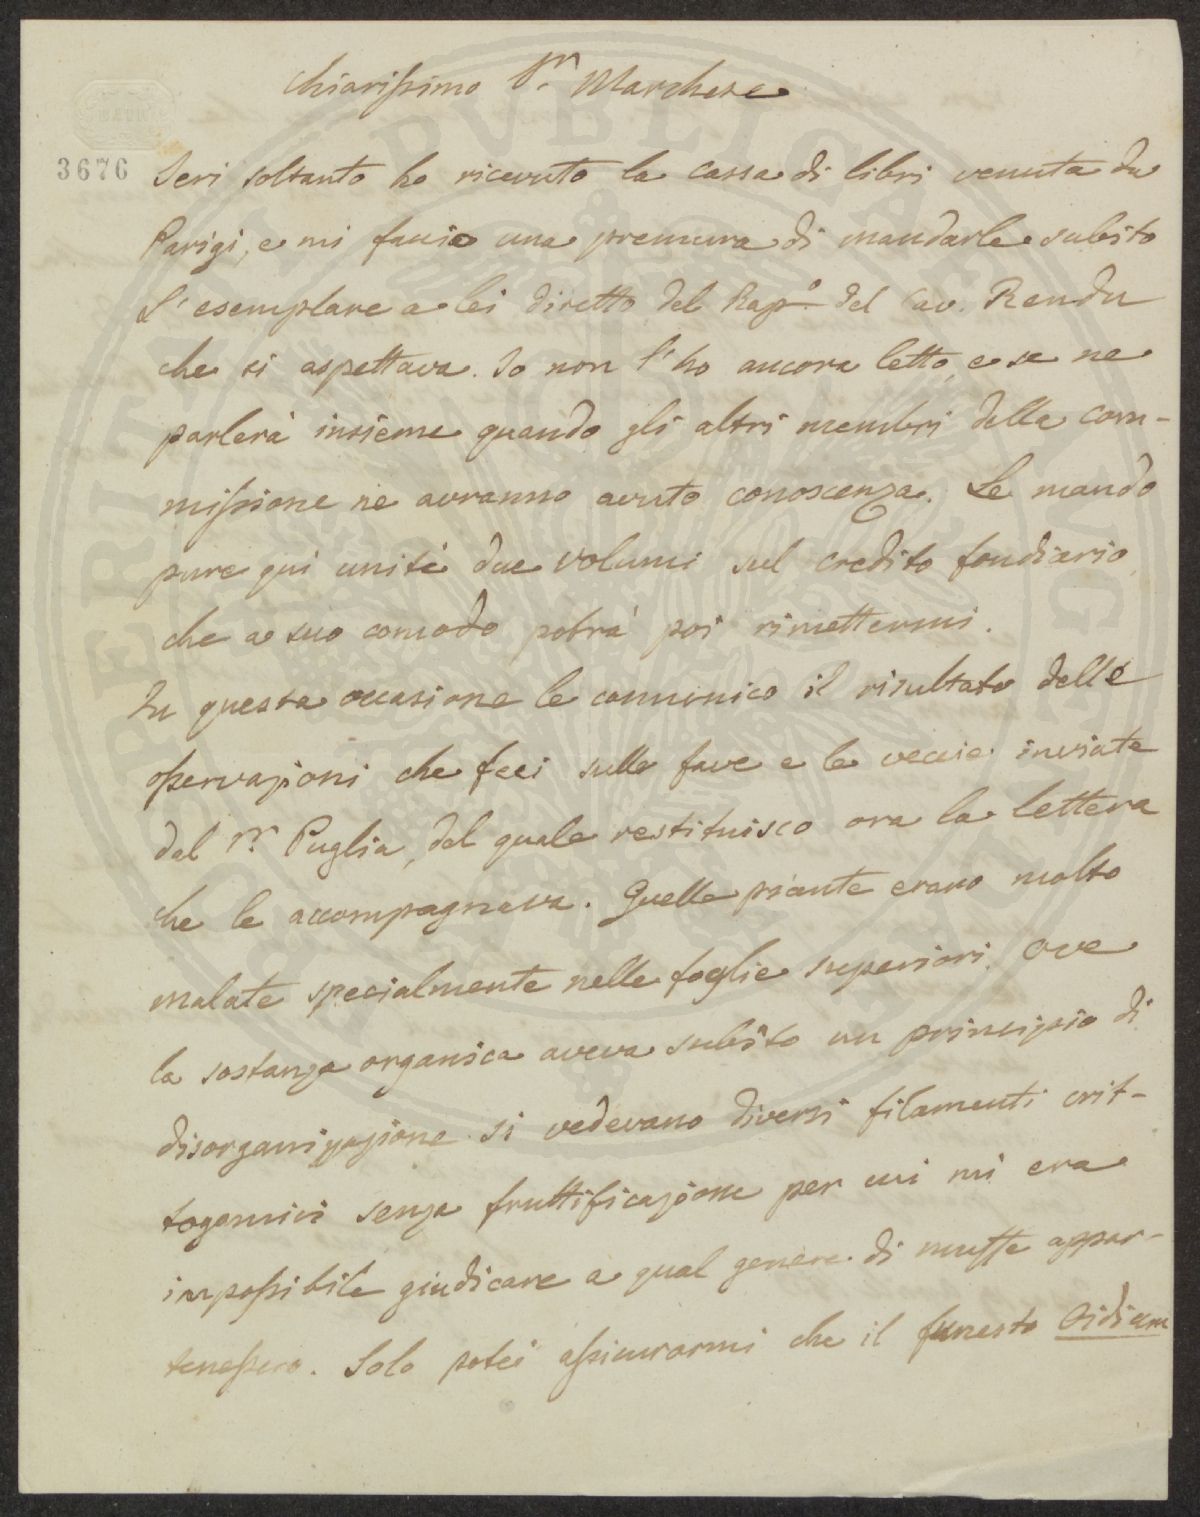 Chiarissimo Sr. Marchese
3676
Ieri soltanto ho ricevuto la cassa di libri venuta da
Parigi, e mi faccio una premura di mandarle subito
l'esemplare a lei diretto del Rapo. del Cav. Rendu
che si aspettava. Io non l'ho ancora letto, e se ne
parlerà insieme quando gli altri membri della com-
missione ne avranno avuto conoscenza. Le mando
pure qui uniti due volumi sul credito fondiario,
che a suo comodo potrà poi rimettermi.
In questa occasione le comunico il risultato delle
osservazioni che feci sulle fave e le veccie inviate
dal Sr. Puglia, del quale restituisco ora la lettera
che le accompagnava. Quelle piante erano molto
malate specialmente nelle foglie superiori. Ove
la sostanza organica aveva subito un principio di
disorganizzazione si vedevano diversi filamenti crit-
togamici senza fruttificazione per cui mi era
impossibile giudicare a qual genere di muffe appar-
tenessero. Solo potei assicurarmi che il funesto Oidium